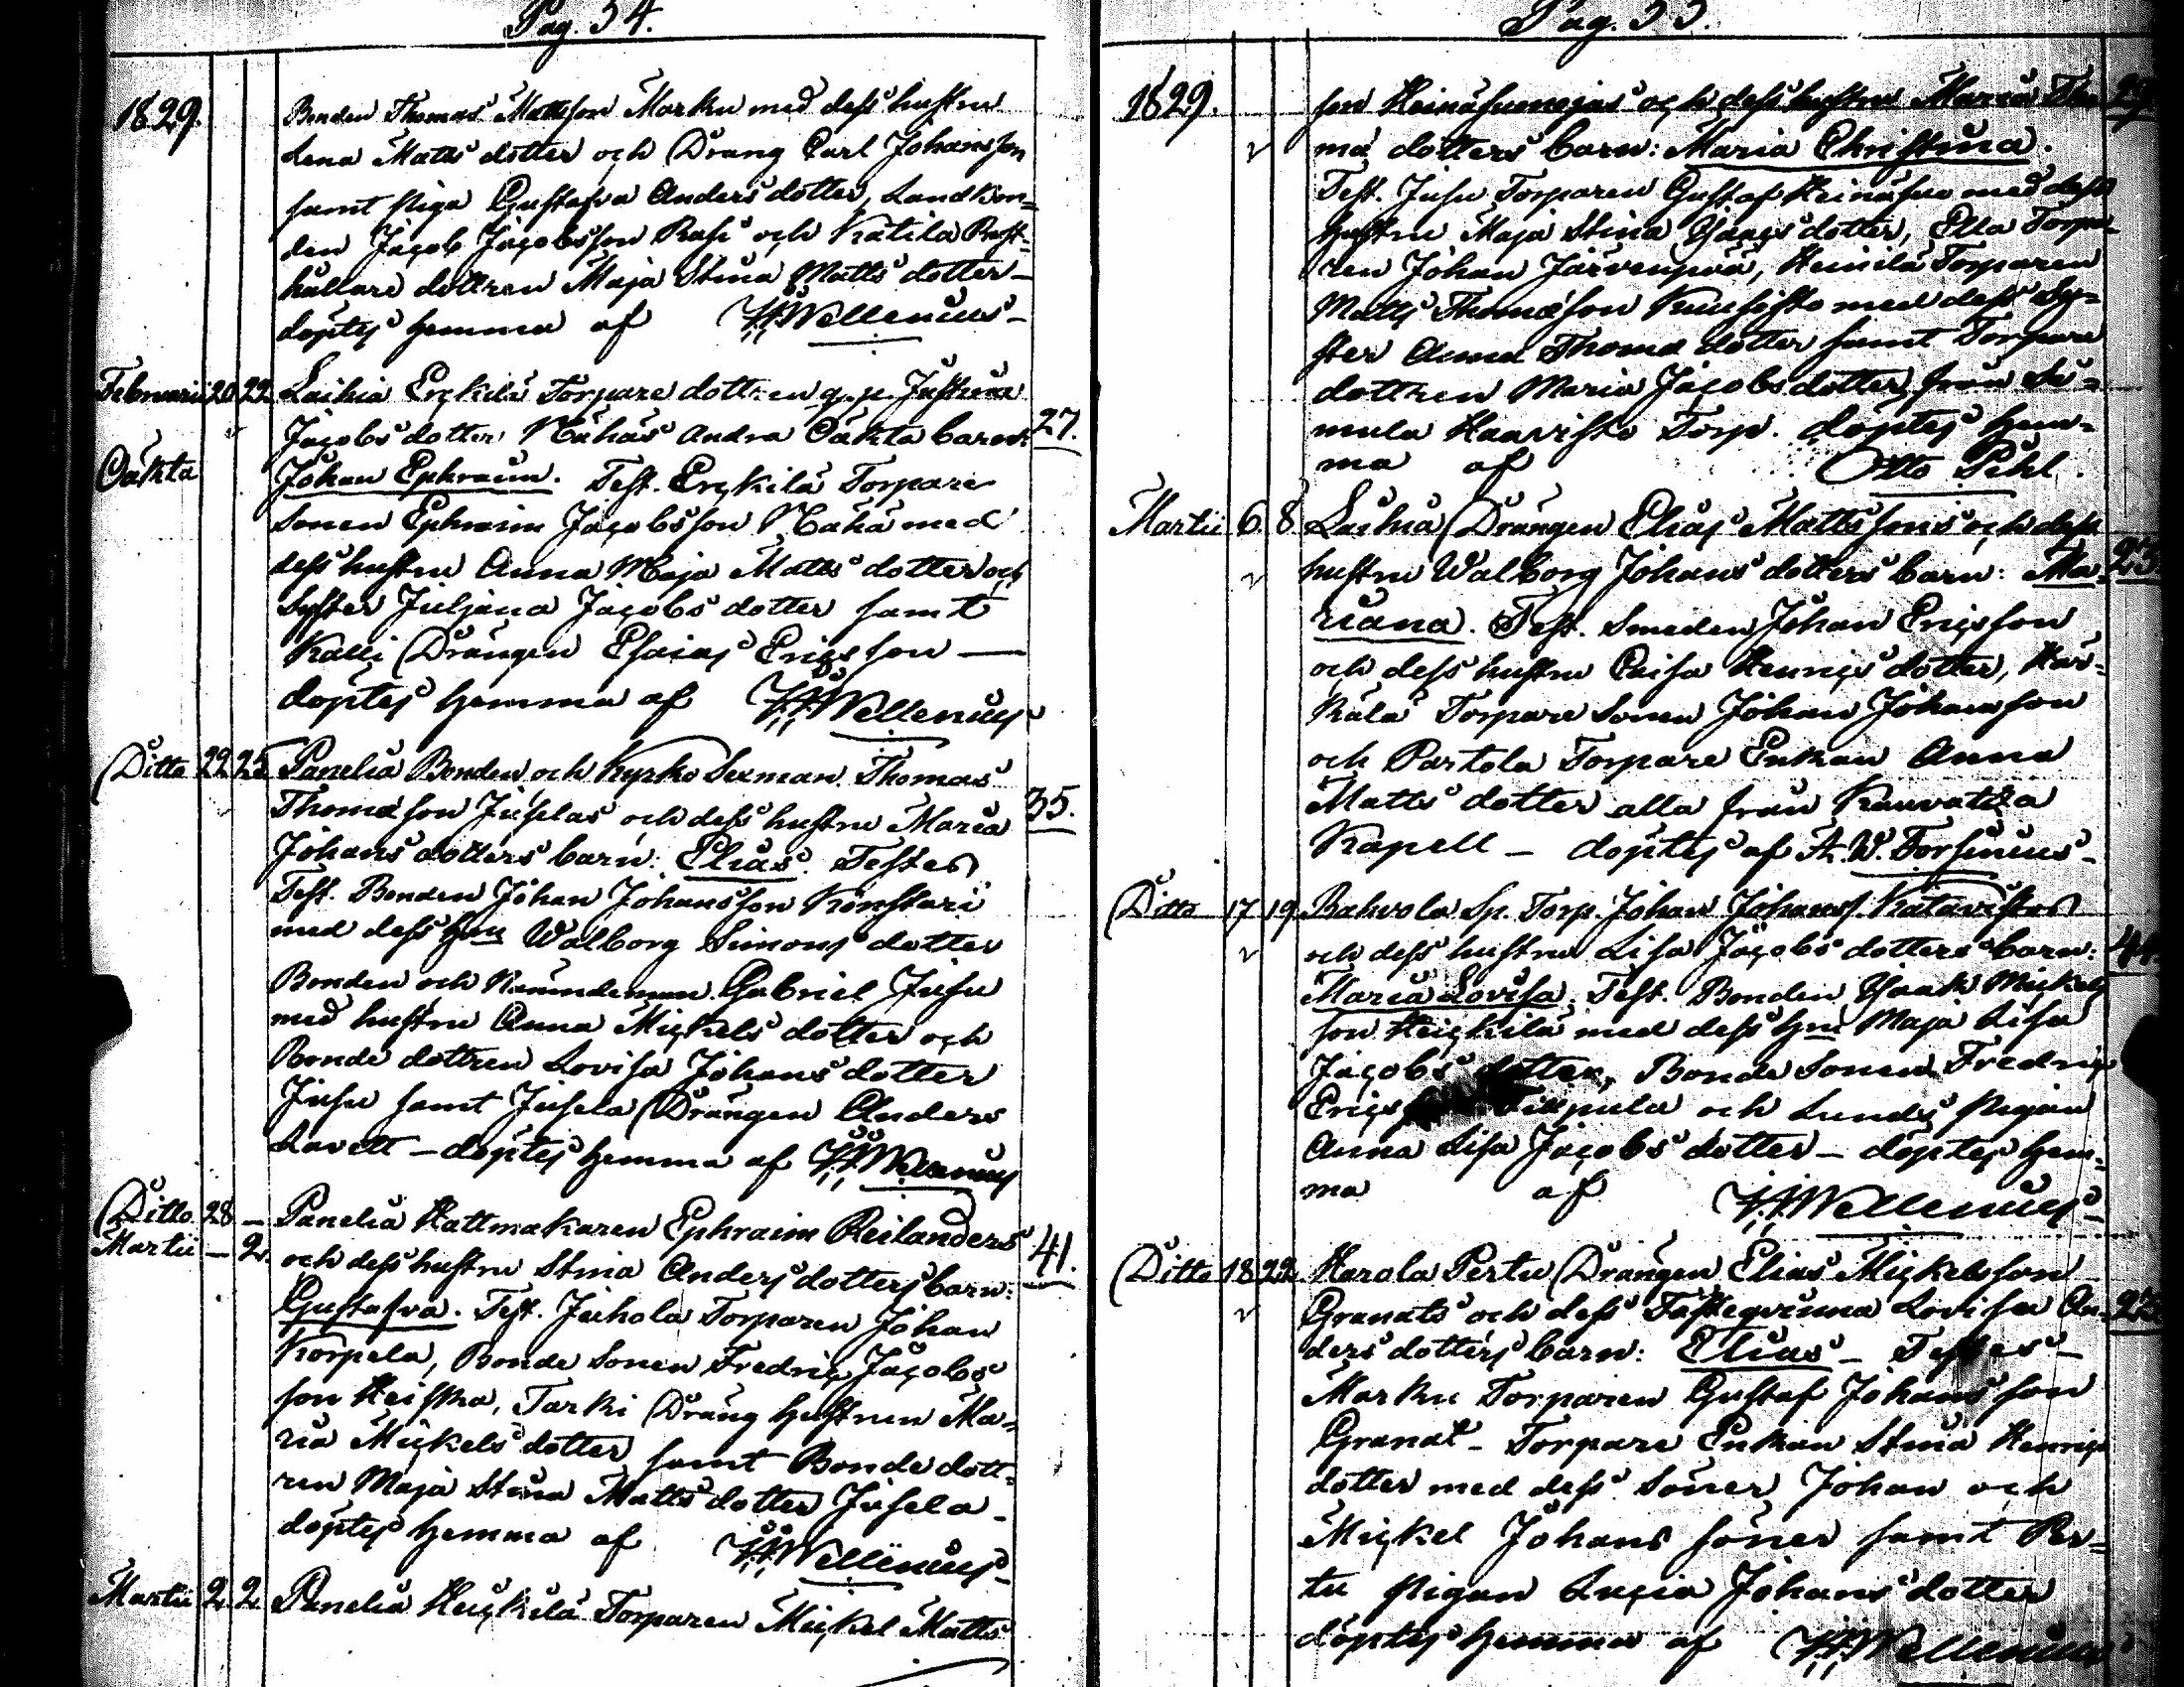 Pag. 34.
1829. Bonden Thomas Mattsson Marku med dess hustru
Lena Matts dotter och Dräng Carl Johansson
samt piga Gustafva Anders dotter, Landbon-
den Jacob Jacobsson Rasi och Kätilä Rust-
hållare dottren Maja Stina Matts dotter –
döptes hemma af Wellenius –
Februarii 20 22 Laihia Erckilä Torpare dottren q. p. Justina
Jacobs dotter Mähäs andra Oäkta barn 27.
Oäkta Johan Ephraim. Test. Erckilä Torpare
sonen Ephraim Jacobsson Mähä med
dess hustru Anna Maja Matts dotter och
Syster Juljana Jacobs dotter samt
Drängen Esaias Ericsson —
döptes hemma af Wellenius
Ditto 22 25 Panelia Bonden och Kyrko Sexman Thomas
Thomasson Juselas och dess hustru Maria 35.
Johans dotters barn: Elias. Testes
Test. Bonden Johan Johansson Könstari
med dess hru Walborg Simons dotter
Bonden och Nämndeman Gabriel Jusu
med hustru Anna Mickels dotter och
Bonde dottren Lovisa Johans dotter
Jusu samt Jusela Drängen Anders
Lavett – döptes hemma af Wellenius
Ditto 28 – Panelia Hattmakaren Ephraim Reilanders
Martii – 2. och dess hustru Stina Anders dotters barn: 41.
Gustafva. Test. Juhola Torparen Johan
Korpela, Bonde Sonen Fredric Jacobs
son Heiska, Tarki Dräng hustrun Ma-
ria Mickels dotter samt Bonde dott-
ren Maja Stina Matts dotter Jusela –
döptes hemma af Wellenius –
Martii 2 2 Panelia Heickilä Torparen Mickel Matts
Pag. 35.
1829. son Heinäsuonojas och dess hustru Maria Tho-
ma dotters barn: Maria Christina.
Test. Jusu Torparen Gustaf Heinäsuo med dess
hustru Maja Stina Isaacs dotter, Torpa-
ren Johan Järvenpää, Heinilä Torparen
Matts Thomasson Kuusisto med dess Sy-
ster Anna Thoma dotter samt Torpare
dottren Maria Jacobs dotter från Su-
mula Haavisto Torp. döptes hem-
ma af Otto Pihl.
Martii 6. 8. Laihia Drängen Elias Mattssons och dess
hustru Walborg Johans dotters barn: Ma- 23.
riana. Test. Smeden Johan Ericsson
och dess hustru Caisa Henrics dotter, Här-
kälä Torpare Sonen Johan Johansson
och Partola Torpare Enkan Anna
Matts dotter alla från Kauvatza
Kapell – döptes af A. W. Forsenius –
Ditto 17 19 Bahvola Sp. Torp. Johan Johanss. Katavistos
och dess hustru Lisa Jacobs dotters barn: 44.
Maria Lovisa. Test. Bonden Isaak Mickels
son Heickilä med dess hru Maja Lisa
Jacobs dotter, Bonde Sonen Fredric
och Lunds Pigan
Anna Lisa Jacobs dotter – döptes hem-
ma af Wellenius –
Ditto 18 22 Harola Pertu Drängen Elias Mickelsson
Granats och dess Fästeqvinna Lovisa An- 23.
ders dotters barn: Elias – Testes –
Marku Torparen Gustaf Johansson
Granat – Torpare Enkan Stina Henrics
dotter med dess Söner Johan och
Mickel Johans söner samt Per-
tu Pigan Lucia Johans dotter
döptes hemma af Wellenius